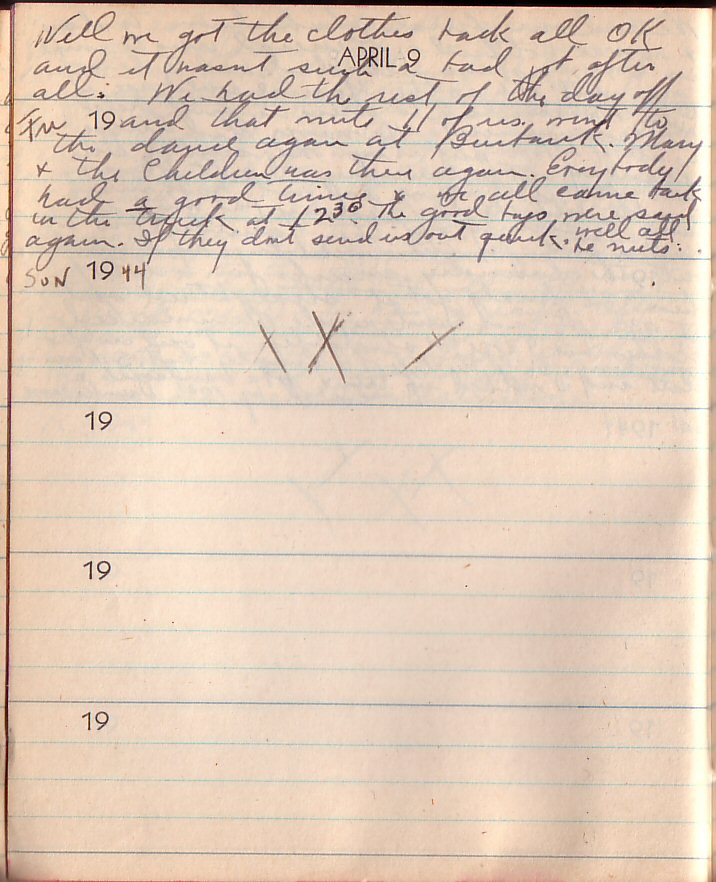 Well we got the clothes back all OK
APRIL 9
and it wasnt such a bad job after
all. We had the rest of the day off
19 and that nite 11 of us went to
the dance again at Burbank. Mary
& the Children was there again. Everybody
had a good time & we all came back
in the truck at 12 30. The good boys were said
again. If they dont send us out quick, well all
be nuts.
SUN 1944
X X
19
19
19